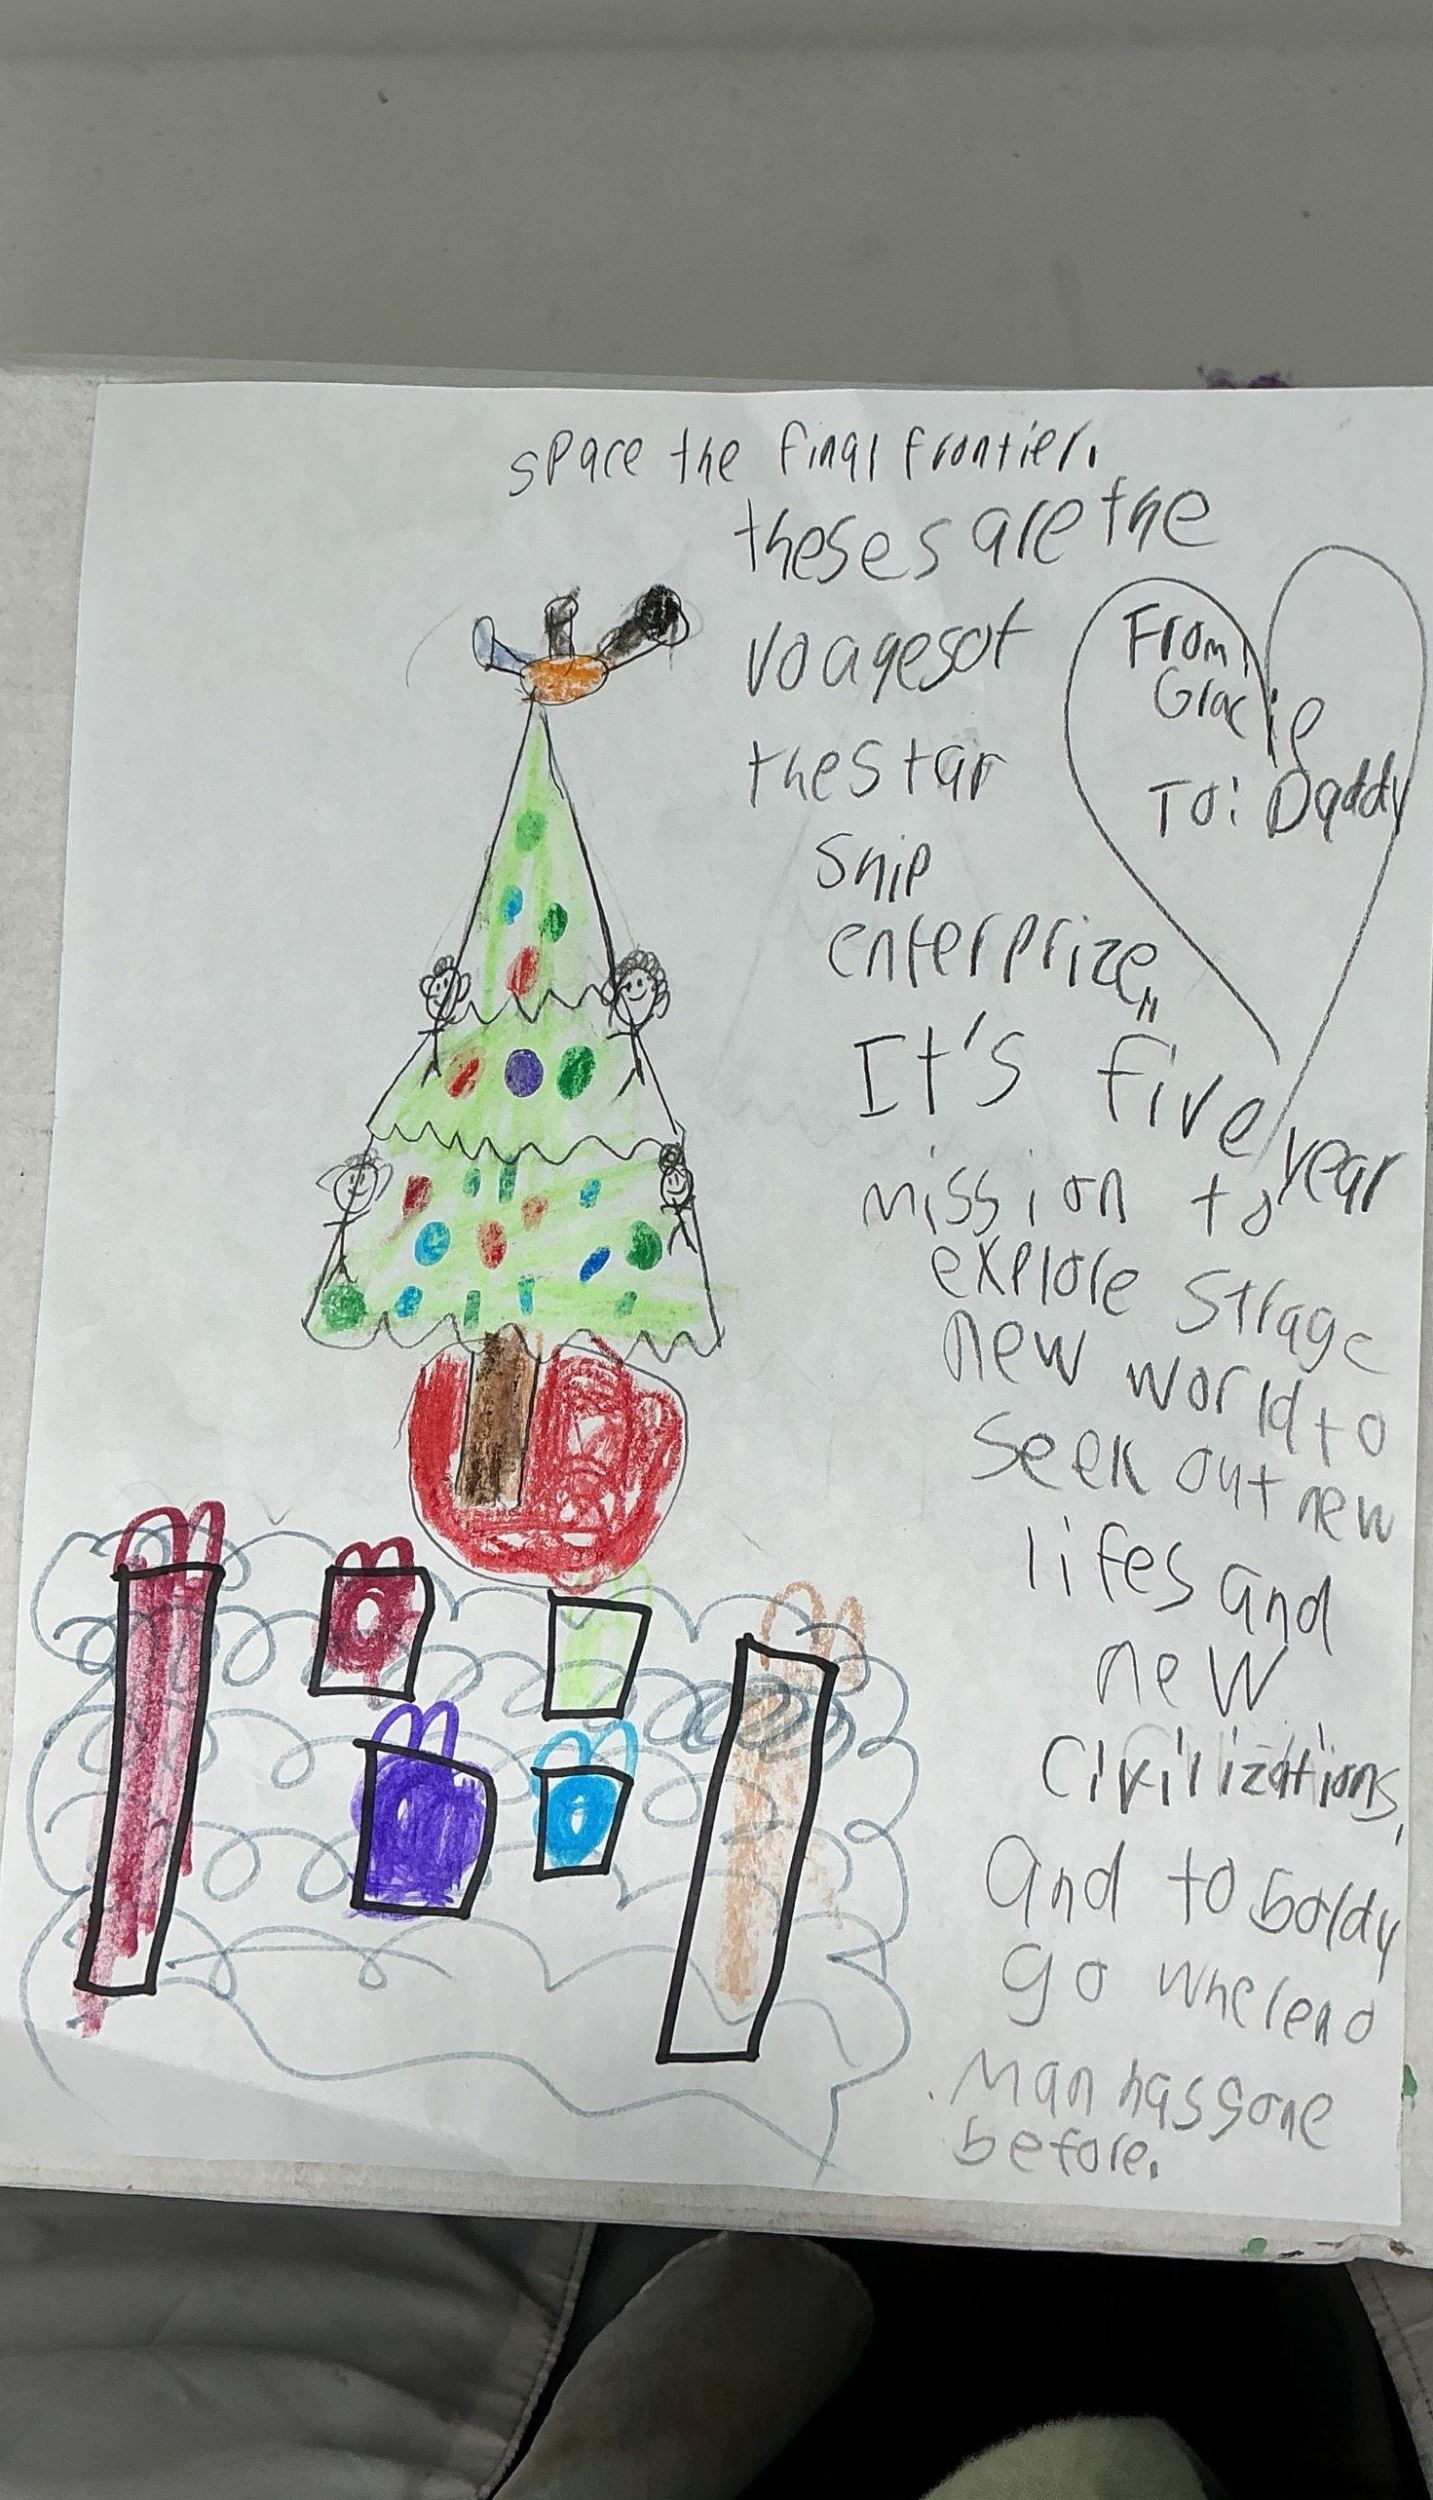 space the final frontier.
theses are the
voagesof
thestar
ship
enterprize,,
It's five year
mission to
explore strage
new world to
seek out new
lifes and
new
civilizations,
and to boldy
go wherend
man has gone
before.
From:
Gracie
To: Daddy